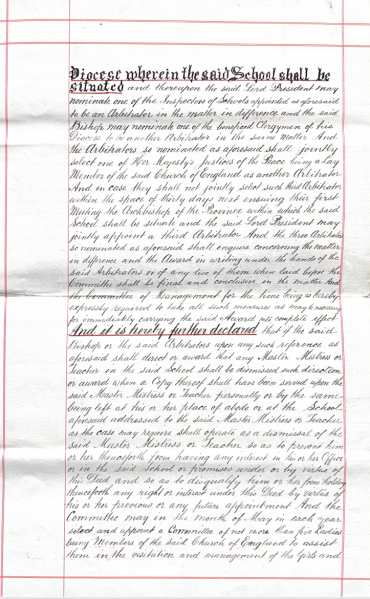 Diocese wherein the said School shall be
situated and thereupon the said Lord President may
nominate one of the Inspectors of Schools appointed as aforesaid
to be an Arbitrator in the matter in difference and the said
Bishop may nominate one of the beneficed Clergymen of his
Diocese to be another Arbitrator in the same matter And
the Arbitrators so nominated as aforesaid shall jointly
select one of Her Majesty's Justices of the Peace being a lay
Member of the said Church of England as another Arbitrator
And in case they shall not jointly select such third Arbitrator
within the space of thirty days next ensuing their first
Meeting the Archbishop of the Province within which the said
School shall be situate and the said Lord President may
jointly appoint a third Arbitrator And the three Arbitrators
so nominated as aforesaid shall enquire concerning the matter
in difference and the Award in writing under the hands of the
said Arbitrators or of any two of them when laid before the
Committee shall be final and conclusive in the matter And
the Committee of Management for the time being is hereby
expressly required to take all such measures as may be necessary
for immediately carrying the said Award into complete effect
And it is hereby further declared that if the said
Bishop or the said Arbitrators upon any such reference as
aforesaid shall direct or award that any Master Mistress or
Teacher in the said School shall be dismissed such direction
or award when a Copy thereof shall have been served upon the
said Master Mistress or Teacher personally or by the same
being left at his or her place of abode or at the School
aforesaid addressed to the said Master Mistress or Teacher
as the case may require shall operate as a dismissal of the
said Master Mistress or Teacher so as to prevent him
or her thenceforth from having any interest in his or her Office
or in the said School or premises under or by virtue of
this Deed and so as to disqualify him or her from holding
thenceforth any right or interest under this Deed by virtue of
his or her previous or any future appointment And the
Committee may in the month of May in each year
select and appoint a Committee of not more than five Ladies
being Members of the said Church of England to assist
them in the visitation and management of the Girls and